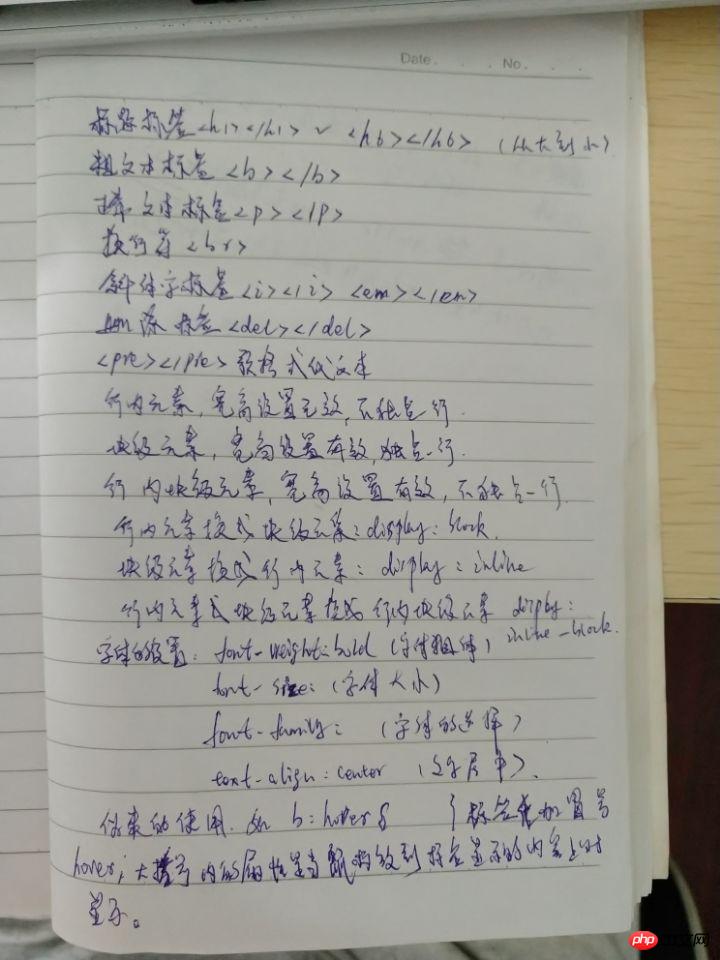 Date. . . No. . .
标题标签<h1></h1> ~ <h6></h6> (从大到小)
粗文本标签<b></b>
文本标签<p></p>
换行符<br>
斜体字标签<i></i> <em></em>
删除标签<del></del>
<pre></pre>预格式化文本
行内元素,宽高设置无效,不独占一行.
块级元素,宽高设置有效,独占一行.
行内块级元素,宽高设置有效,不独占一行.
行内元素换成块级元素:display:block.
块级元素换成行内元素:display:inline
行内元素或块级元素换成行内块级元素 display:
inline-block.
字体的设置:font-weight:bold(字体粗体)
font-size:(字体大小)
font-family:(字体的选择)
text-align:center (文字居中).
伪类的使用.如 b:hover{ }标签名加冒号
hover;大括号内的属性是当鼠标放到标签显示的内容上时
显示。
php 中文网